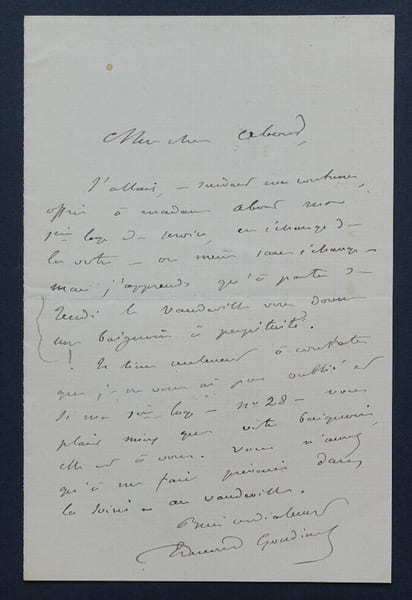 Mon cher Abond,
J'allais, – suivant ma coutume,
offrir à madame Abond mon
1ère loge de service, en échange de
la votre – ou même sans échange –
mais j'apprends qu'à partir de
Jeudi le Vaudeville vous donne
une baignoire à perpétuité.
! Je tiens seulement à constater
que je ne vous ai pas oublié et
si ma loge – no 28 – vous
plait mieux que votre baignoire,
elle est à vous. Vous n'avez
qu'à me faire prévenir dans
la soirée au vaudeville.
Bien cordialement
Edmond Gondinet